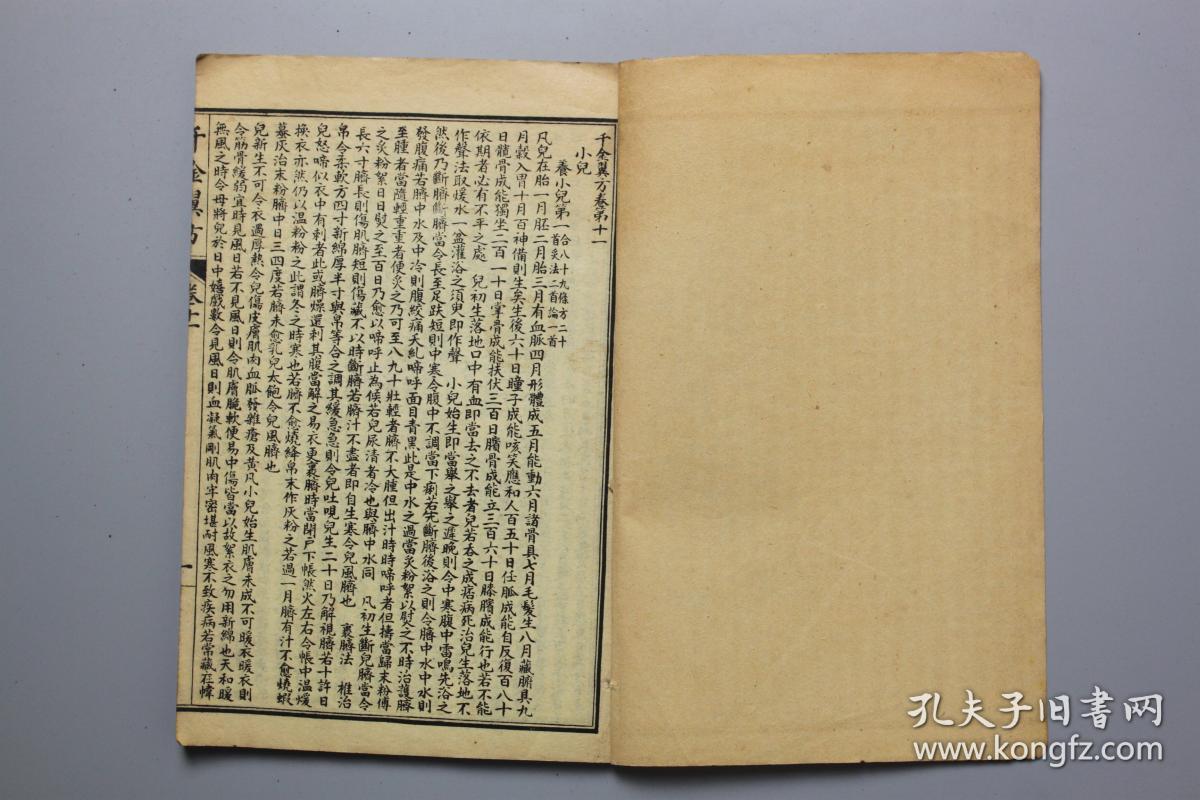 千金翼方卷第十一
小兒
養小兒第一合八十九條方二十
首灸法二首論一首
凡兒在胎一月胚二月胎三月有血脈四月形體成五月能動六月諸骨具七月毛髮生八月藏腑具九
月穀入胃十月百神備則生矣生後六十日瞳子成能咳笑應和人百五十日任脈成能自反復百八十
日髖骨成能獨坐二百一十日掌骨成能扶伏三百日臏骨成能立三百六十日膝臏成能行也若不能
依期者必有不平之處 兒初生落地口中有血即當去之不去者兒若吞之成痞病死治兒生落地不
作聲法取煖水一盆灌浴之須臾即作聲 小兒始生即當舉之舉之遲晚則令中寒腹中雷鳴先浴之
然後乃斷臍斷臍當令長至足趺短則中寒令腹中不調當下痢若先斷臍後浴之則令臍中水中水則
發腹痛若臍中水及中冷則腹絞痛夭糺啼呼面目青黑此是中水之過當灸粉絮以熨之不時治護臍
至腫者當隨輕重重者便灸之乃可至八九十壯輕者臍不大腫但出汁時時啼呼者但擣當歸末粉傅
之灸粉絮日日熨之至百日乃愈以啼呼止為候若兒尿清者冷也與臍中水同 凡初生斷兒臍當令
長六寸臍長則傷肌臍短則傷藏不以時斷臍若臍汁不盡者即自生寒令兒風臍也 裹臍法 椎治
帛令柔軟方四寸新綿厚半寸與帛等合之調其緩急急則令兒吐哯兒生二十日乃解視臍若十許日
兒怒啼似衣中有刺者此或臍燥還刺其腹當解之易衣更裹裹臍時當閉戶下帳燃火左右令帳中溫煖
換衣亦然仍以溫粉粉之此謂冬之時寒也若臍不愈燒絳帛末作灰粉之若過一月臍有汁不愈燒蝦
蟇灰治末粉臍中日三四度若臍未愈乳兒太飽令兒風臍也
兒新生不可令衣過厚熱令兒傷皮膚肌肉血脈發雜瘡及黃凡小兒始生肌膚未成不可暖衣暖衣則
令筋骨緩弱宜時見風日若不見風日則令肌膚脆軟便易中傷皆當以故絮衣之勿用新綿也天和暖
無風之時令母將兒於日中嬉戲數令見風日則血凝氣剛肌肉牢密堪耐風寒不致疾病若常藏在幃
千金翼方 卷十一 一
孔夫子旧书网
www.kongfz.com